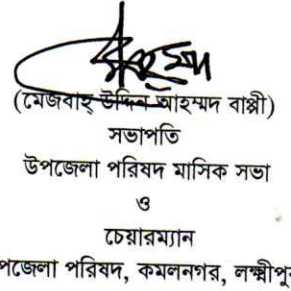 (মেজবাহ্ উদ্দিন আহম্মদ বাপ্পী)
সভাপতি
উপজেলা পরিষদ মাসিক সভা
ও
চেয়ারম্যান
পজেলা পরিষদ, কমলনগর, লক্ষ্মীপু